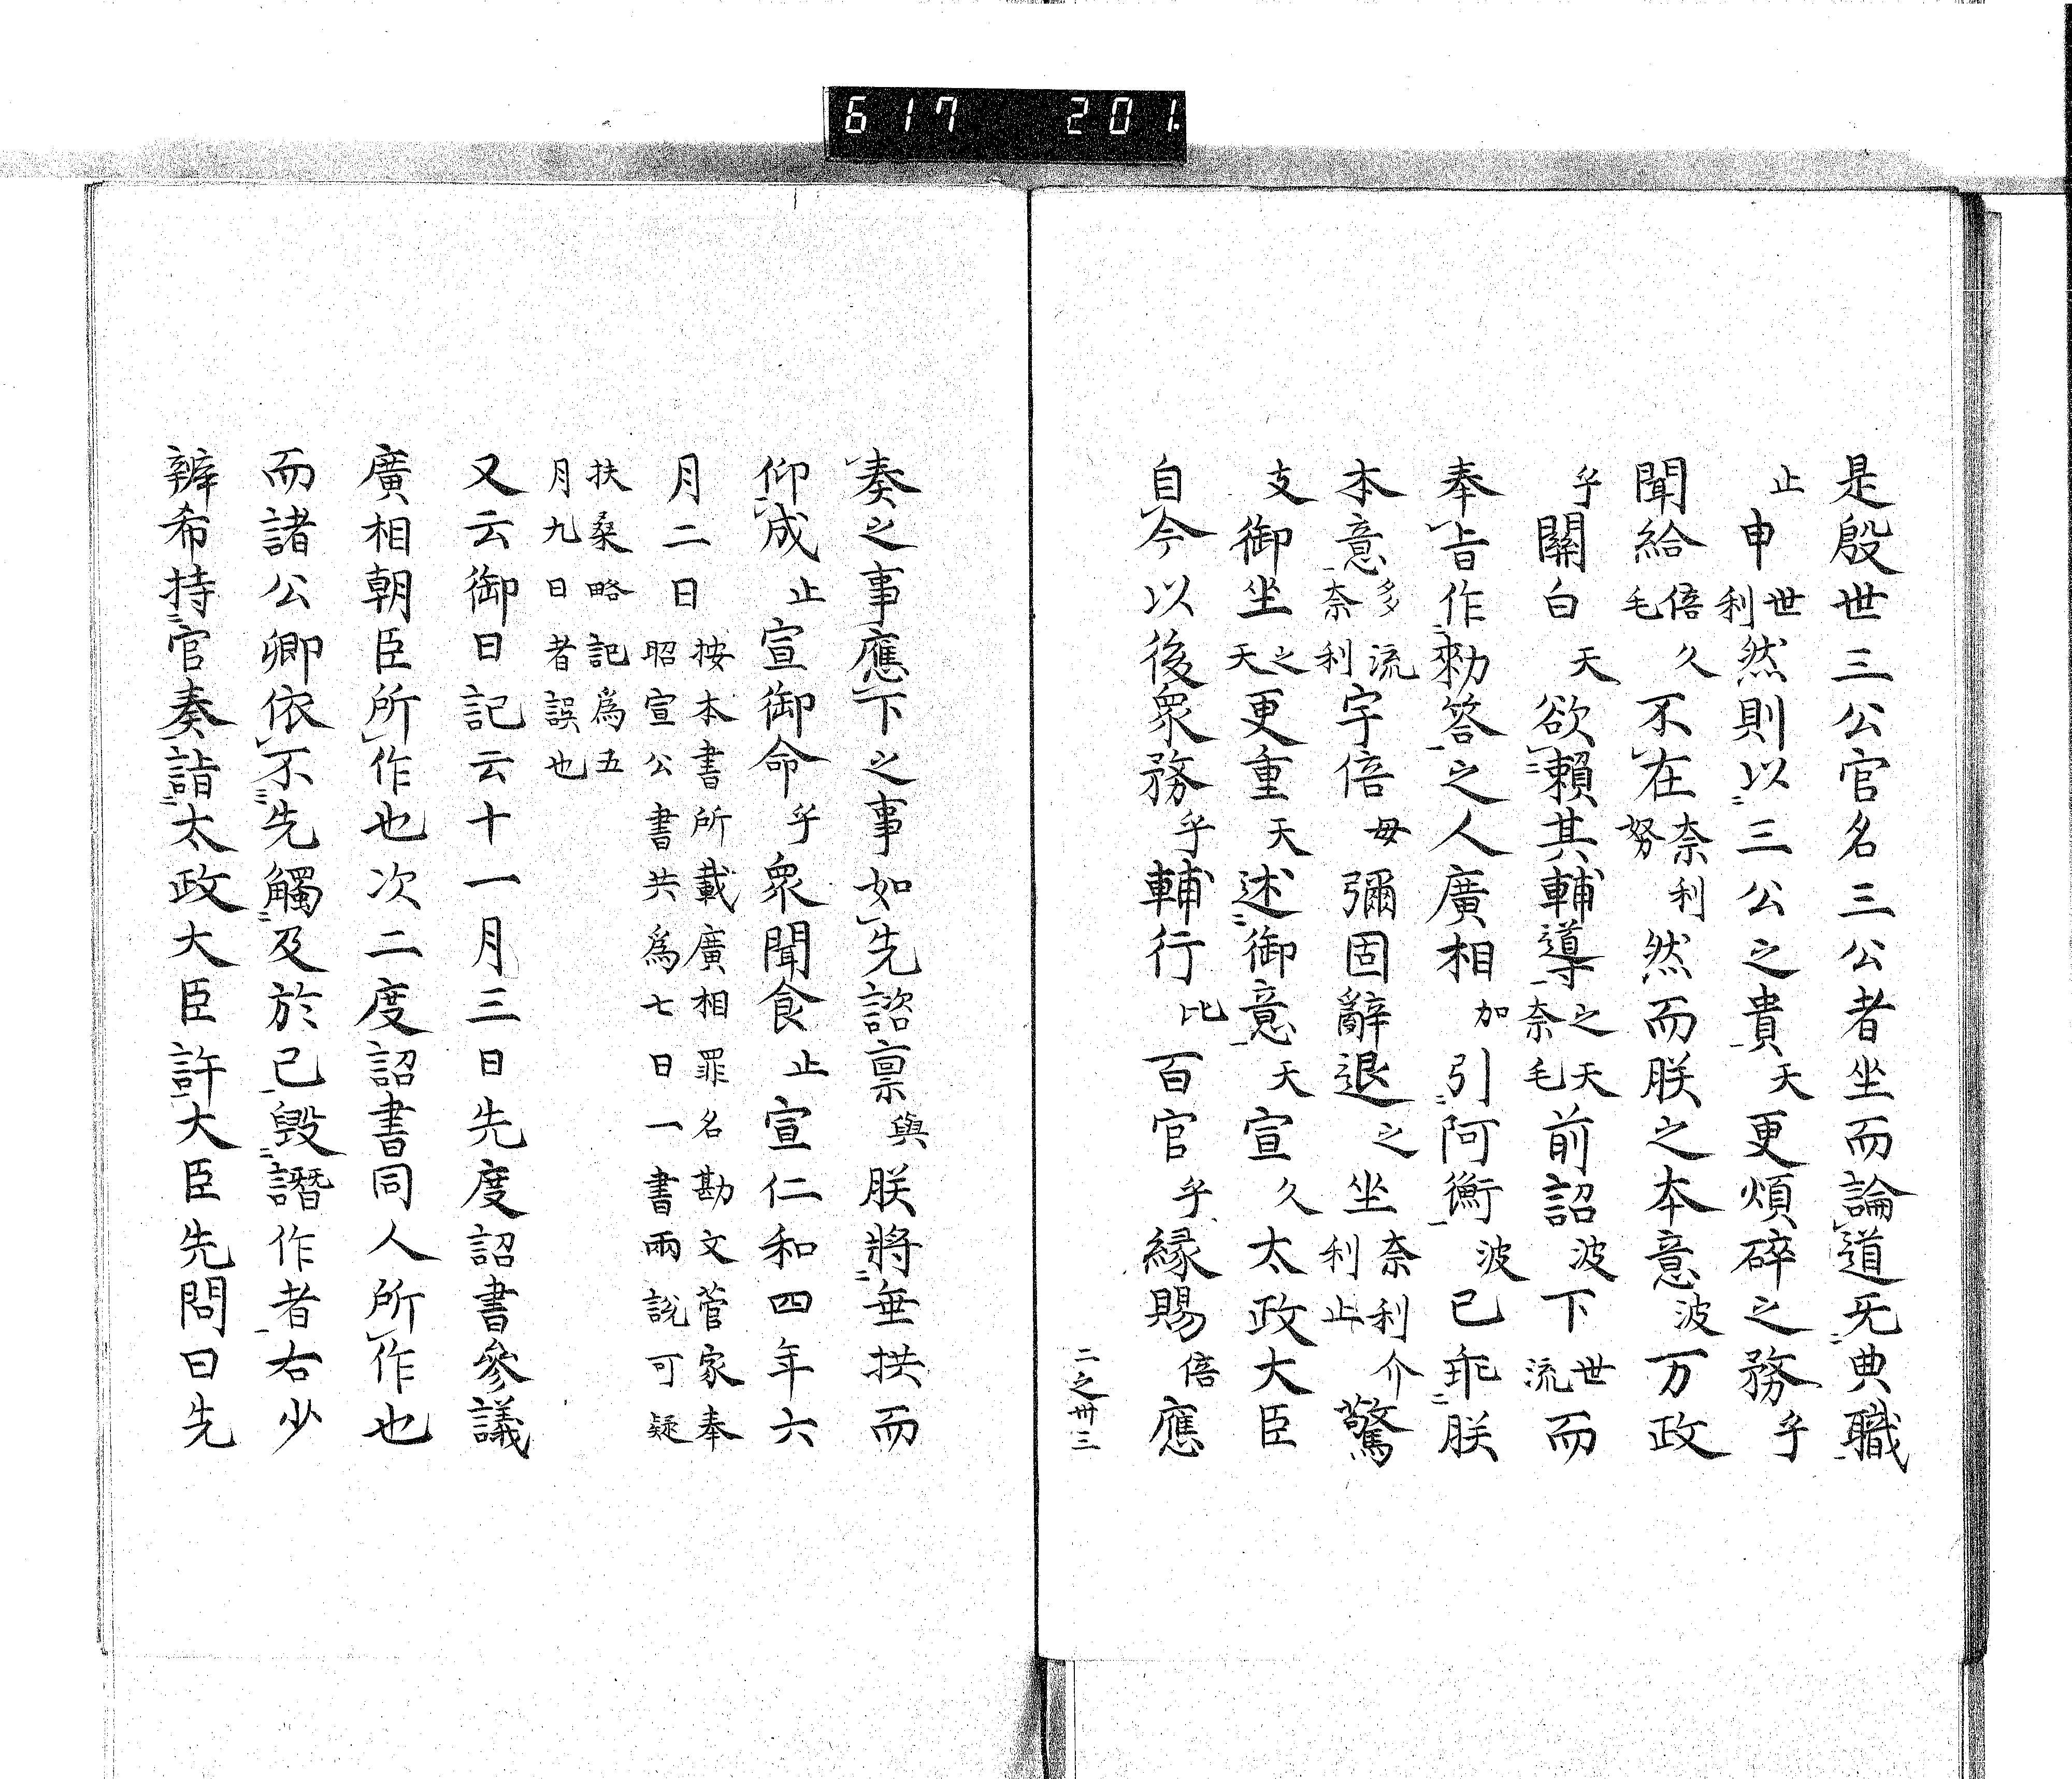 617 201.
是殷世三公官名三公者坐而論道无典職
止申世利然則以三公之貴天更煩碎之務乎
聞給倍久毛不在奈利努然而朕之本意波万政
乎關白天欲賴其輔導之奈天毛前詔波下世流而
奉旨作勅答之人廣相加引阿衡波已乖朕
本意多流奈利宇倍毋彌固辭退之坐奈利介利止驚
支御坐之天更重天述御意天宣久太政大臣
自今以後衆務乎輔行比百官乎緣賜倍應
二之卅三
奏之事應下之事如先諮禀與朕將垂拱而
仰成止宣御命乎衆聞食止宣仁和四年六
月二日按本書所載廣相罪名勘文菅家奉
昭宣公書共爲七日一書兩說可疑
扶桑略記爲五
月九日者誤也
又云御日記云十一月三日先度詔書參議
廣相朝臣所作也次二度詔書同人所作也
而諸公卿依不先觸及於己毀譖作者右少
辨希持官奏詣太政大臣許大臣先問曰先